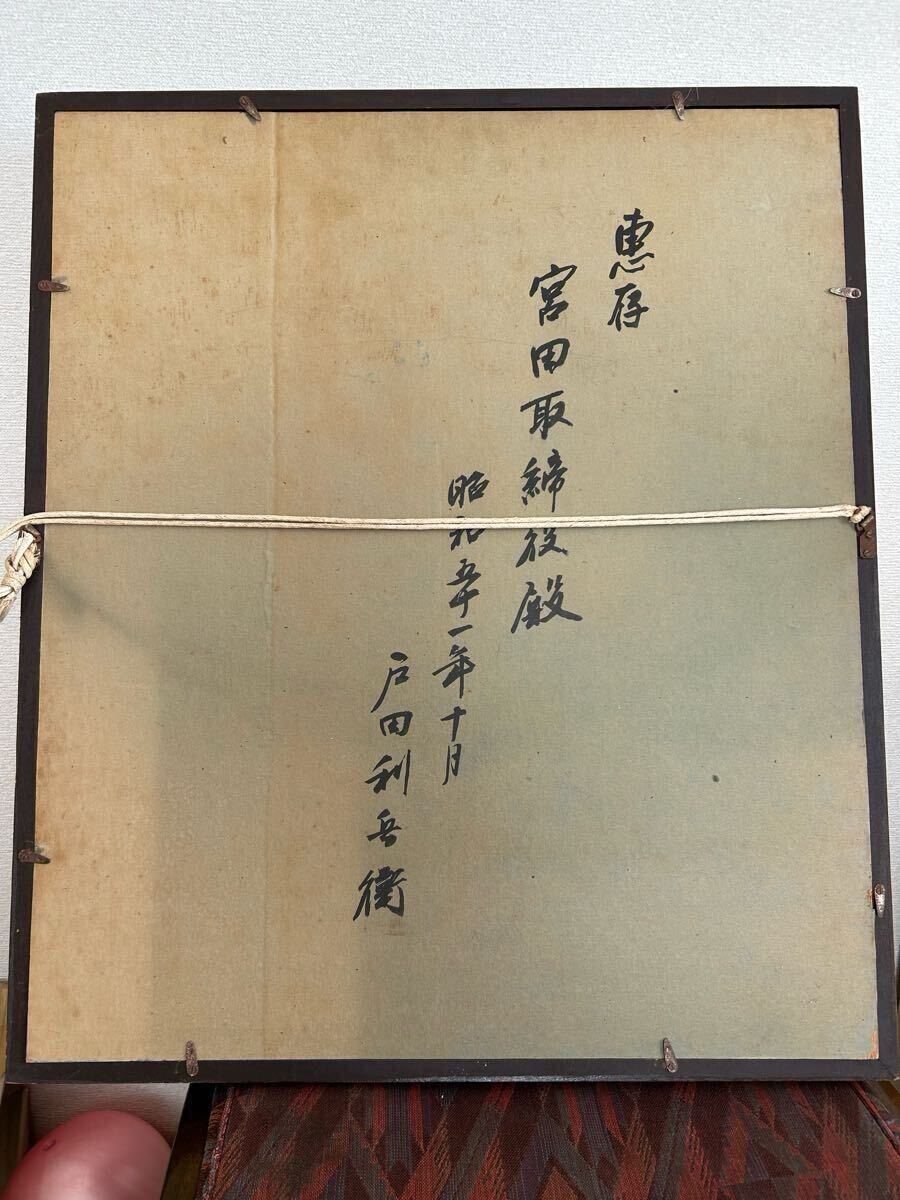 惠存
宮田取締役殿
昭和五十一年十月
戸田利兵衛